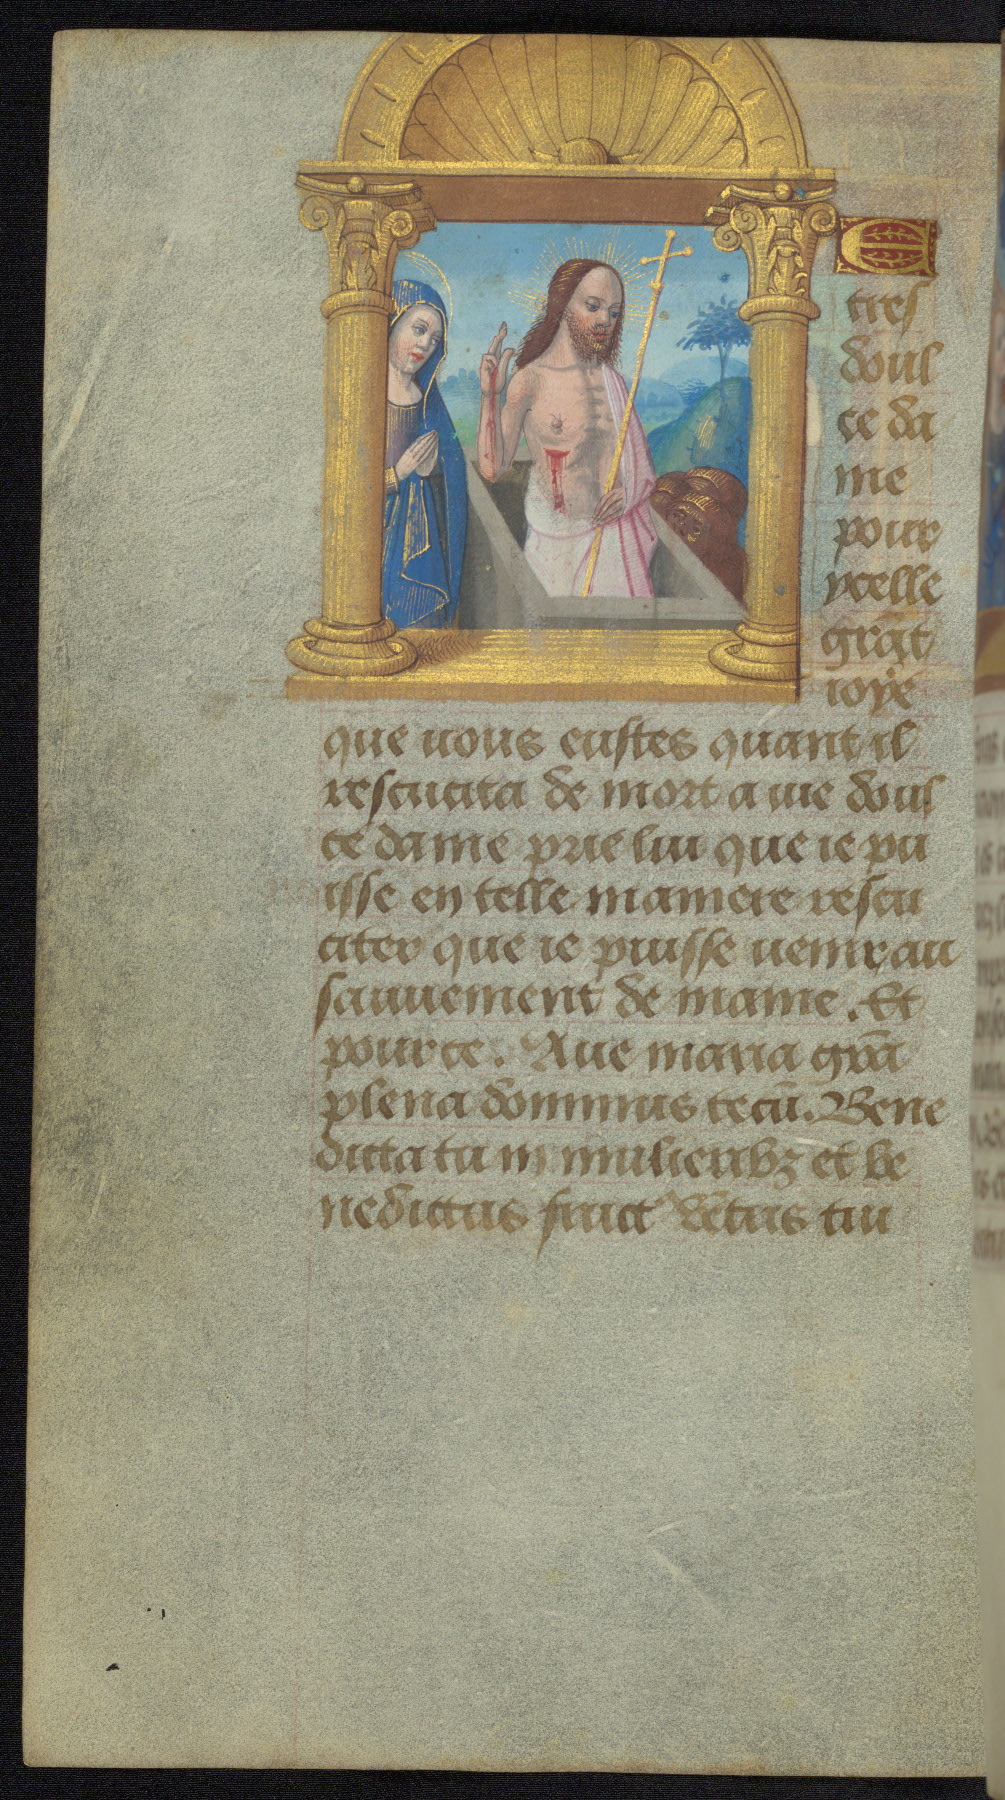 E
tres
doul
ce da
me
pour
ycelle
grāt
ioye
que uous eustes quant il
rescucita de mort a uie doul
ce dame prie lui que ie pu
isse en telle maniere rescu
citer que ie puisse uenir au
sauuement de mame. Et
pour ce. Aue maria gr̄a
plena dominus tecū. Bene
dicta tu in mulieribꝫ et be
nedictus fruct᾿ uētris tui